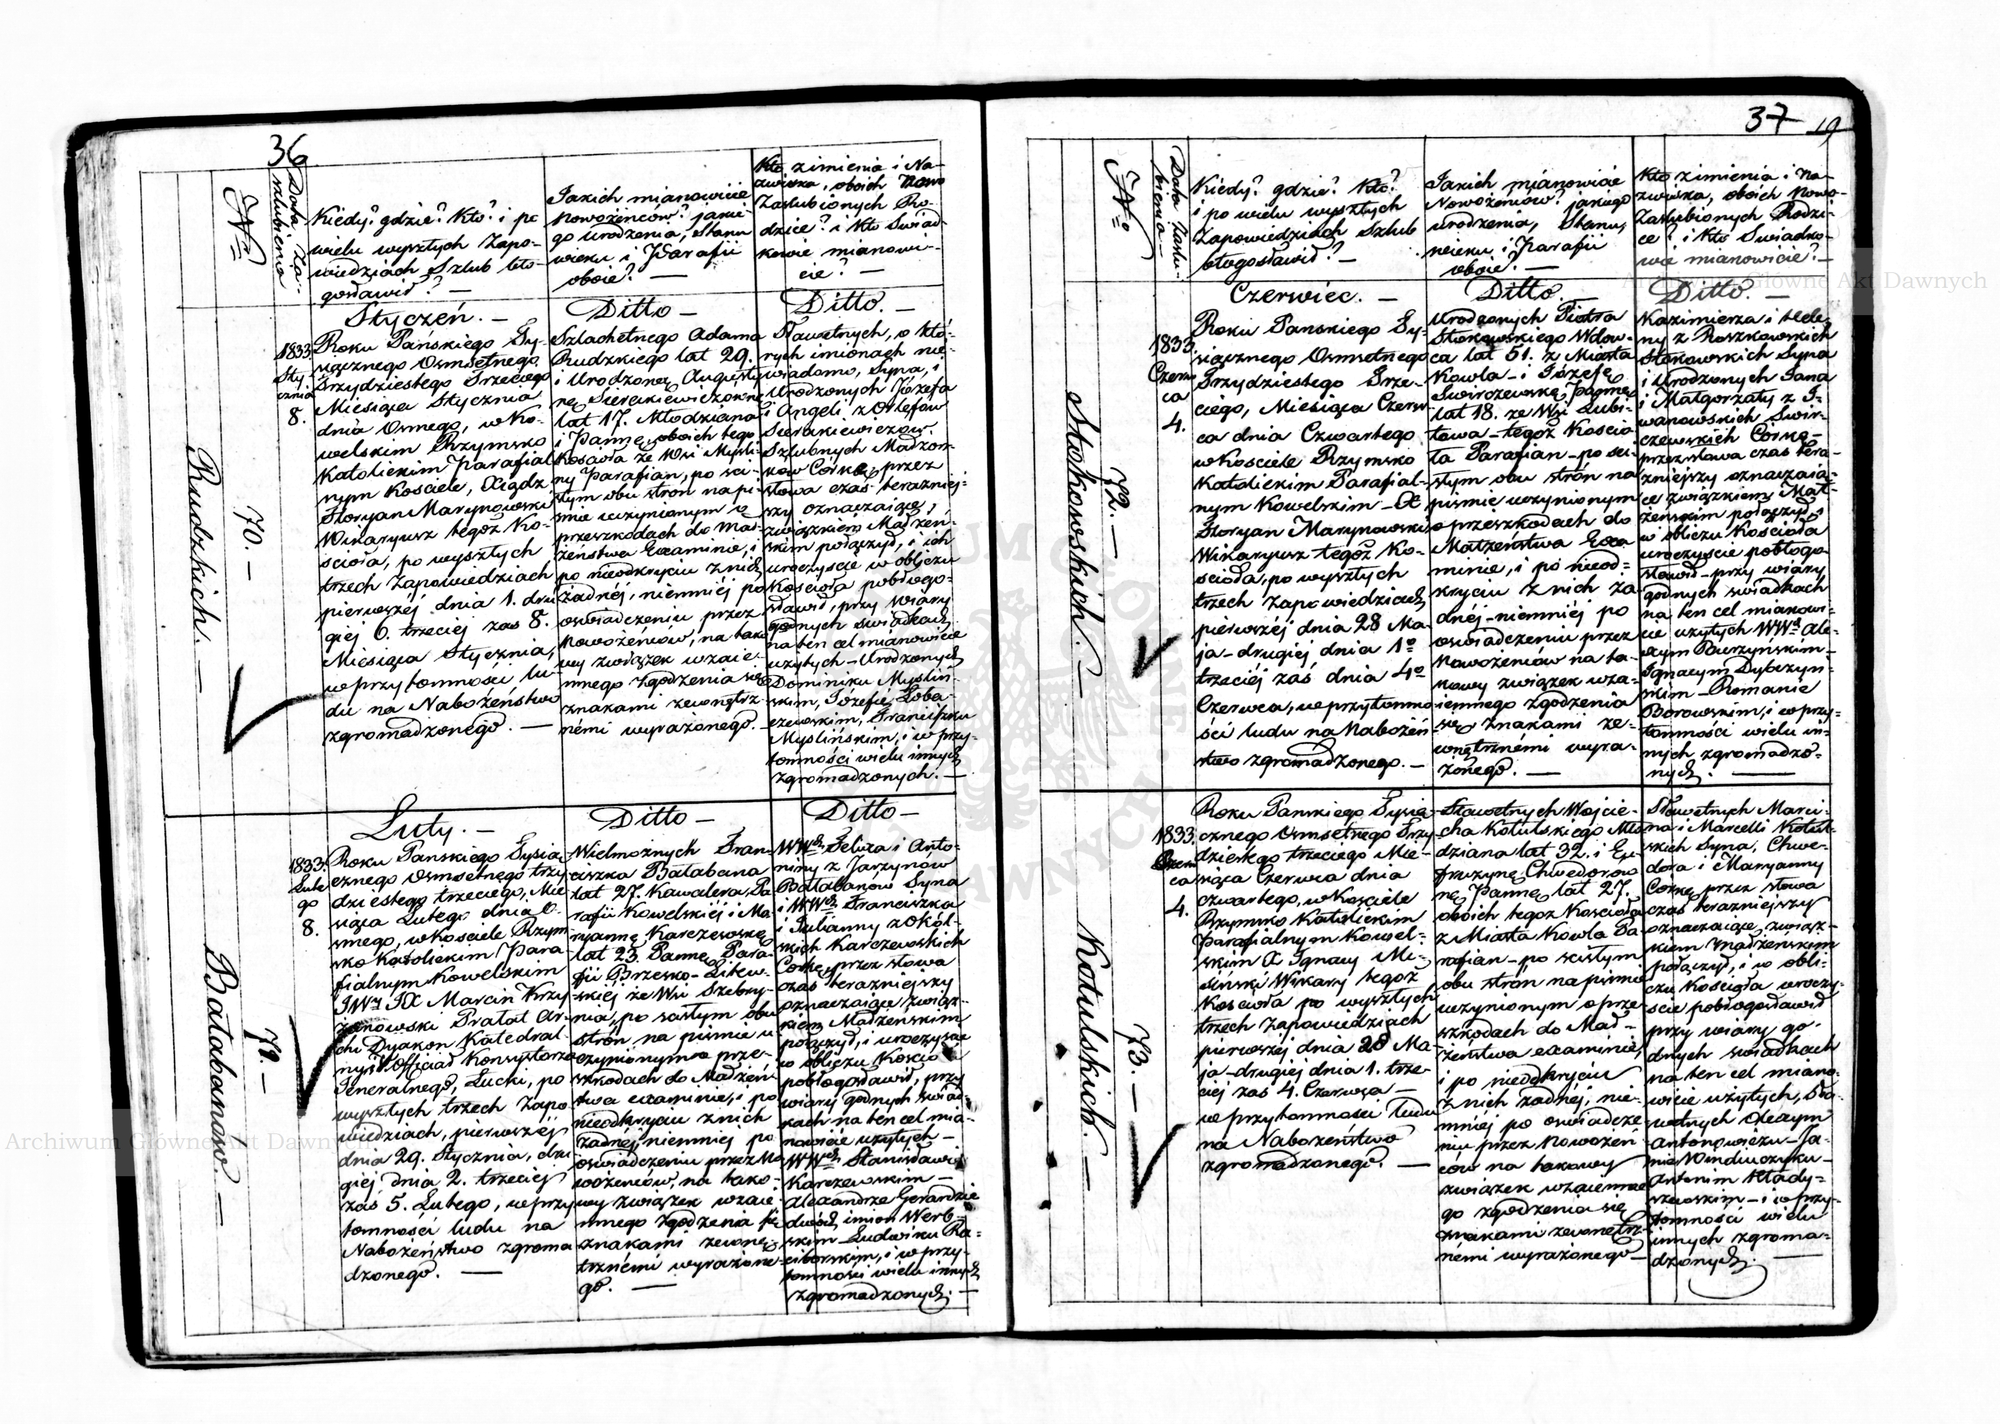 36
№
Data za-
szlubienia
Kiedy? gdzie? Kto? i po
wielu wyszłych Zapo-
wiedziach Szlub bło-
gosławił? —
Jakich mianowicie
Nowożeńców? jakie-
go urodzenia, Stanu
wieku i Parafii
oboie? —
Kto z imienia i Na-
zwiska, obóich Nowo
Zaślubionych Ro-
dzice? i Kto Świad-
kowie mianowi-
cie? —
Rudzkich. —
70. —
1833
Sty-
cznia
8.
Styczeń. —
Roku Pańskiego Ty-
siącznego Ośmsetnego
Trzydziestego Trzeciego
Miesiąca Stycznia
dnia Osmego, w Ko-
welskim Rzymsko
Katolickim Parafial
nym Kosciele, Xiądz
Floryan Marynowski
Wikaryusz tegoż Ko-
ścioła, po wyszłych
trzech Zapowiedziach
pierwszej dnia 1. dru
giej 6. trzeciej zaś 8.
Miesiąca Stycznia,
w przytomności lu-
du na Nabożeństwo
zgromadzonego. —
Ditto —
Szlachetnego Adama
Rudzkiego lat 29.
i Urodzoną Augusty
nę Sierakiewiczównę
lat 17. Młodziana
i Pannę, oboich tego
Kościoła ze Wsi Myśli-
ny Parafian, po sci-
słym obu stron na pi-
smie uczynionym o
przeszkodach do Mał-
żeństwa Examinie, i
po nieodkryciu z nich
żadnéj, niemniéj po
oświadczeniu przez
Nowożeniów, na tako
wy związek wzaie-
mnego zgodzenia się
znakami zewnętrz
némi wyrażonego. —
Ditto. —
Sławetnych, o któ-
rych imionach nie-
wiadomo, Syna, i
Urodzonych Józefa
i Angeli z Orłefow
Sierakiewiczow.
Szlubnych Małżon-
kow Corkę, przez
słowa czas teraźniej-
szy oznaczaiące,
związkiem Małżeń-
skim połączył, i ich
uroczyscie w obliczu
Kościoła pobłogo-
sławił, przy wiary
godnych swiadkach
na ten cel mianowicie
użytych — Urodzonych
Dominiku Myśliń-
skim, Józefie Łoba-
czewskim, Franciszku
Myslińskim, i w przy-
tomności wielu innych
zgromadzonych. —
Bałabanów —
71. —
1833
Lute
go
8.
Luty. —
Roku Pańskiego Tysią
cznego Ośmsetnego trzy
dziestego trzeciego, Mie
siąca Lutego dnia O-
smego, w Kościele Rzym
sko Katolickim Para
fialnym Kowelskim
JWy JX Marcin Krzy
żanowski Prałat Ar-
chi Dyakon Katedral-
ny, Officiał Konsystorza
Jeneralnego, Łucki, po
wyszłych trzech Zapo
wiedziach, pierwszéj
dnia 29. Stycznia, dru
giej dnia 2. trzeciej
zaś 5. Lutego, w przy
tomności ludu na
Nabożeństwo zgroma
dzonego. —
Ditto —
Wielmożnych Fran-
ciszka Bałabana
lat 27. Kawalera, Pa
rafii Kowelskiéj i Ma
ryannę Karczewskę
lat 23. Pannę, Para
fii Brzesko-Litew-
skiéj ze Wsi Szebry-
nia, po scisłym obu
stron, na pismie u
czynionym o prze-
szkodach do Małżeń
stwa examinie, i po
nieodkryciu z nich
żadnej, niemniej po
oświadczeniu przez No
wożeniów, na tako-
wy związek wzaie
mnego zgodzenia się
znakami zewnę
trznémi wyrażone-
go. —
Ditto —
WWch Felixa i Anto-
niny z Jarzynów
Bałabanów Syna
i WWch Franciszka
i Julianny z Okól-
skich Karczewskich
Corkę, przez słowa
czas teraźniejszy
oznaczaiące, związ-
kiem Małżeńskim
połączył, i uroczyscie
w obliczu Koscio
pobłogosławił, przy
wiary godnych swiad-
kach na ten cel mia-
nowicie użytych —
WWch Stanisławie
Karczewskim —
Alexandrze Gerardzie
dwóch imion Werb-
skim — Ludwiku Ra-
ciborskim, i w przy-
tomności wielu innych
zgromadzonych. —
37
19
№
Data Zaślu-
bienia —
Kiedy? gdzie? Kto?
i po wielu wyszłych
Zapowiedziach Szlub
błogosławił? —
Jakich mianowicie
Nowożeniów? jakiego
urodzenia, Stanu,
wieku i Parafii
oboie? —
Kto z imienia i Na-
zwiska, obóich Nowo-
Zaślubionych Rodzi-
ce? i Kto Świadko-
wie mianowicie? —
Stokowskich. —
72. —
1833.
Czerw
ca
4.
Czerwiec. —
Roku Pańskiego Ty-
siącznego Ośmsetnego
Trzydziestego Trze-
ciego, Miesiąca Czerw
ca dnia Czwartego
w Kościele Rzymsko
Katolickim Parafial-
nym Kowelskim — X
Floryan Marynowski
Wikaryusz tegoż Ko-
ścioła, po wyszłych
trzech Zapowiedziach
pierwszéj dnia 28 Ma-
ja — drugiéj dnia 1º
trzeciéj zaś dnia 4º
Czerwca, w przytomno
ści ludu na Nabożeń
stwo zgromadzonego. —
Ditto. —
Urodzonych Piotra
Stokowskiego Wdow-
ca lat 51. z Miasta
Kowla — i Józefę
Swirczewskę, Pannę
lat 18. ze Wsi Lubi-
towa — tegoż Koscio
ła Parafian — po sci-
słym obu strón na
pismie uczynionym
o przeszkodach do
Małżeństwa Exa
minie, i po nieod-
kryciu z nich ża
dnéj — niemniéj po
oświadczeniu przez
Nowożeniów na ta-
kowy związek wza-
iemnego zgodzenia
się znakami ze-
wnętrznémi wyra-
żonego. —
Ditto. —
Kazimierza i Hele-
ny z Roszkowskich
Stokowskich Syna
i Urodzonych Jana
i Małgorzaty z I-
wanowskich Swir-
czewskich Corkę —
przez słowa czas tera-
zniejszy oznaczaią-
ce związkiem Mał-
żenskim połączył,
w obliczu Kościoła
uroczyscie pobłogo-
sławił — przy wiary
godnych świadkach
na ten cel mianowi-
cie użytych WWch Ale-
xym Burzyńskim —
Ignacym Dybczyn-
skim — Romanie
Borowskim, i w przy-
tomności wielu in-
nych zgromadzo-
nych. —
Kotulskich. —
73. —
1833.
Czerw
ca
4.
Roku Pańskiego Tysią
cznego Ośmsetnego Trzy
dziestego trzeciego Mie-
siąca Czerwca dnia
czwartego, w Kosciele
Rzymsko Katolickim
Parafialnym Kowel-
skim X Ignacy Mi-
siński Wikary tegoż
Kościoła po wyszłych
trzech Zapowiedziach
pierwszej dnia 28 Ma-
ja — drugiej dnia 1. trze-
ciéj zaś 4. Czerwca —
w przytomności ludu
na Nabożeństwo
zgromadzonego. —
Sławetnych Wojcie-
cha Kotulskiego Mło
dziana lat 32. i Eu-
frozynę Chwedorow
nę Pannę lat 27.
obóich tegoż Kościoła
z Miasta Kowla Pa
rafian — po scisłym
obu strón na pismie
uczynionym o prze-
szkodach do Mał-
żeństwa examinie,
i po nieodkryciu
z nich żadnéj, nie-
mniéj po oświadcze
niu przez Nowożeń
ców na takowy
związek wzaiemne
go zgodzenia się
znakami zewnętrz-
némi wyrażonego —
Sławetnych Marci-
na i Marcelli Kotul-
skich Syna, Chwe-
dora i Maryanny
Corkę, przez słowa
czas teraźniejszy
oznaczaiące, związ-
kiem Małżeńskim
połączył, i w obli-
czu Kościoła uroczy-
scie pobłogosławił
przy wiary go-
dnych świadkach
na ten cel miano-
wicie użytych, Sła-
wetnych Alexym
Antonowiczu — Ja-
nie Windiuczyku —
Antonim Kłady-
szewskim — i w przy-
tomności wielu
innych zgroma-
dzonych. —
Archiwum Główne Akt Dawnych
Archiwum Główne Akt Dawnych
ARCHIWUM GŁÓWNE AKT DAWNYCH